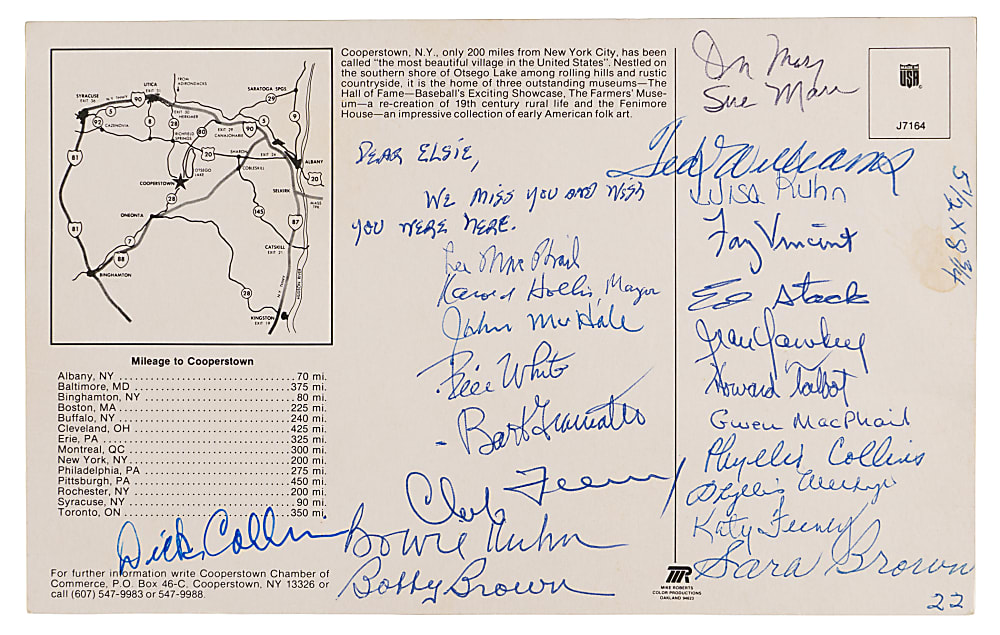 SYRACUSE
EXIT 36
N.Y. THWY.
90
UTICA
EXIT 31
FROM
ADIRONDACKS
SARATOGA SPGS
29
5
92
CAZENOVIA
8
28
EXIT 30
HERKIMER
RICHFIELD
SPRINGS
80
EXIT 29
CANAJOHARIE
90
5
9
20
SHARON
EXIT 24
ALBANY
81
OTSEGO
LAKE
COBLESKILL
20
COOPERSTOWN
28
SELKIRK
MASS
TPK
ONEONTA
145
87
81
7
88
CATSKILL
EXIT 21
BINGHAMTON
28
N.Y. THWY.
HUDSON RIVER
KINGSTON
EXIT 19
Mileage to Cooperstown
Albany, NY 70 mi.
Baltimore, MD 375 mi.
Binghamton, NY 80 mi.
Boston, MA 225 mi.
Buffalo, NY 240 mi.
Cleveland, OH 425 mi.
Erie, PA 325 mi.
Montreal, QC 300 mi.
New York, NY 200 mi.
Philadelphia, PA 275 mi.
Pittsburg, PA 450 mi.
Rochester, NY 200 mi.
Syracuse, NY 90 mi.
Toronto, ON 350 mi.
Dick Collins
For further information write Cooperstown Chamber of
Commerce, P.O. Box 46-C, Cooperstown, NY 13326 or
call (607) 547-9983 or 547-9988.
Cooperstown, N.Y., only 200 miles from New York City, has been
called "the most beautiful village in the United States". Nestled on
the southern shore of Otsego Lake among rolling hills and rustic
countryside, it is the home of three outstanding museums—The
Hall of Fame—Baseball's Exciting Showcase, The Farmers' Muse-
um—a re-creation of 19th century rural life and the Fenimore
House—an impressive collection of early American folk art.
DEAR ELSIE,
WE MISS YOU AND WISH
YOU WERE HERE.
Lee MacPhail
Harold Hollis, Mayor
John McHale
Bill White
- Bart Giamatti
Chub Feeney
Bowie Kuhn
Bobby Brown
Sue Marr
MADE IN
USA
J7164
Ted Williams
Luisa Kuhn
Fay Vincent
5 1/2 x 8 3/4
Ed Stack
Jean Yawkey
Howard Talbot
Gwen MacPhail
Phyllis Collins
Phyllis
Katy Feeney
Sara Brown
MR
MIKE ROBERTS
COLOR PRODUCTIONS
OAKLAND 94623
22